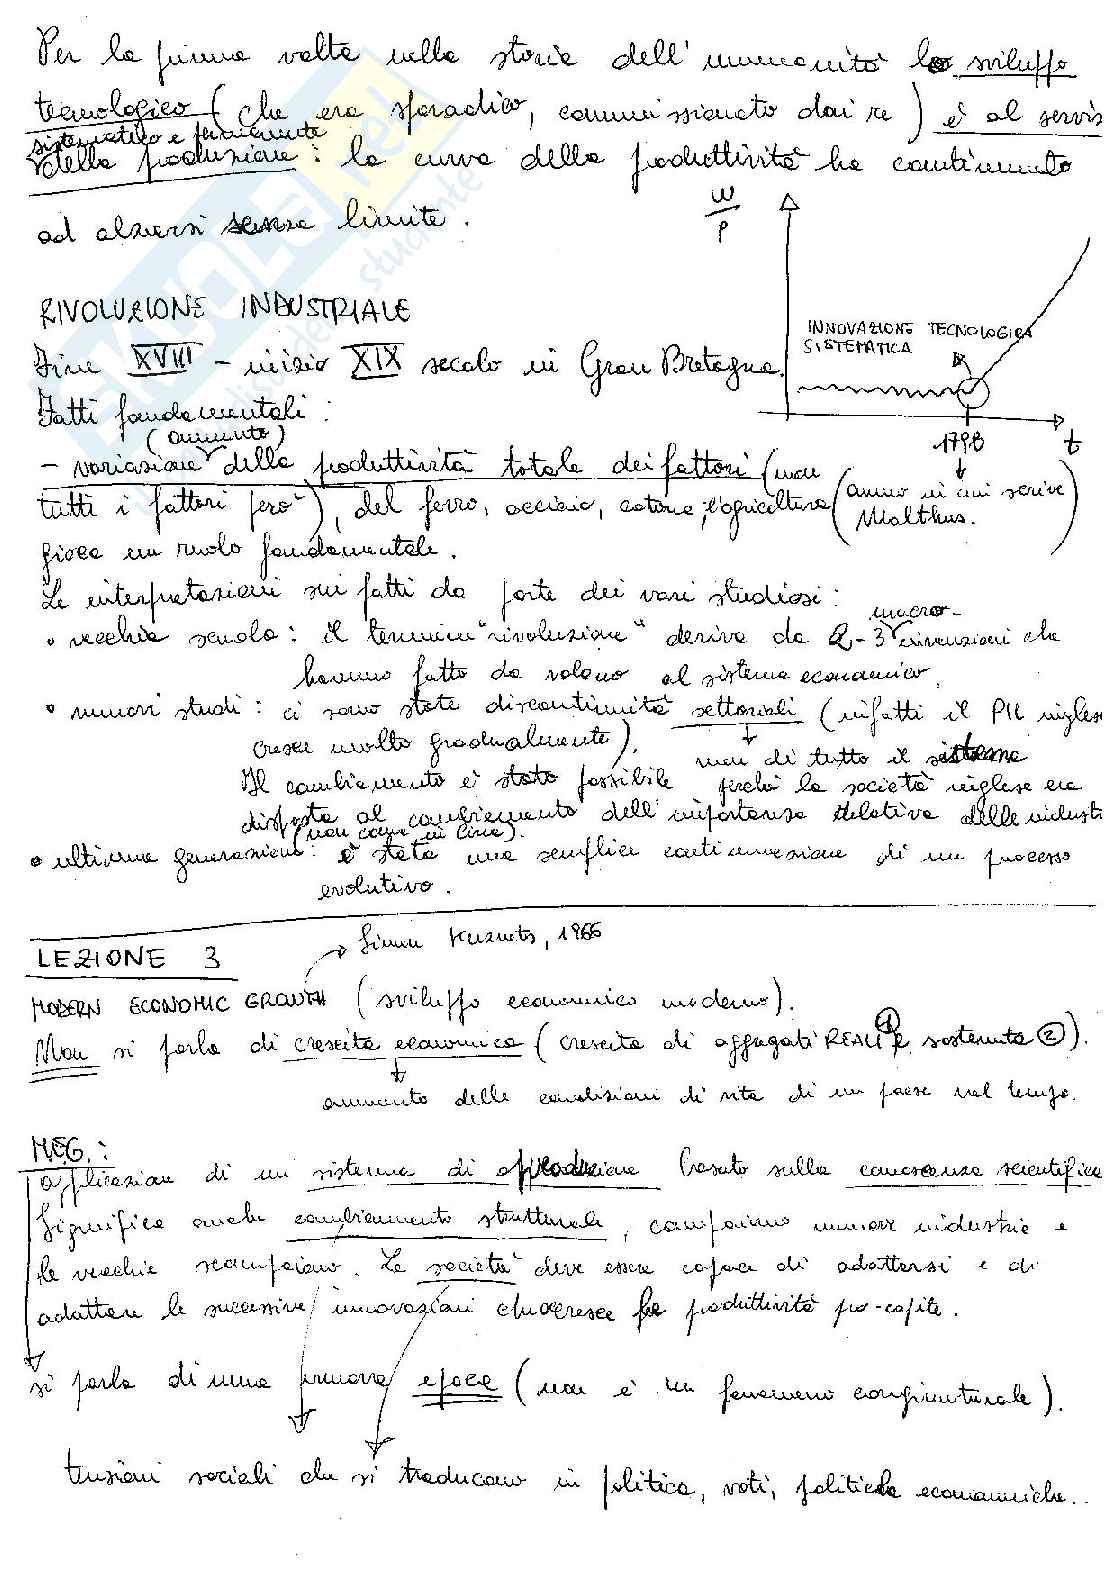 Per la prima volta nella storia dell'umanità lo sviluppo
tecnologico (che era sporadico, commissionato dai re) è al servis
sistematico e permanente
della produzione: la curva della produttività ha continuato
ad alzarsi senza limite.
W/P
INNOVAZIONE TECNOLOGICA
SISTEMATICA
1798
t
(anno in cui scrive
Malthus.)
RIVOLUZIONE INDUSTRIALE
Fine XVIII - inizio XIX secolo in Gran Bretagna.
Fatti fondamentali:
(aumento)
- variazione della produttività totale dei fattori (non
tutti i fattori però), del ferro, acciaio, cotone, l'agricoltura
gioca un ruolo fondamentale.
Le interpretazioni sui fatti da parte dei vari studiosi:
macro-
• vecchia scuola: il termine "rivoluzione" deriva da 2-3 invenzioni che
hanno fatto da volano al sistema economico
• nuovi studi: ci sono state discontinuità settoriali (infatti il PIL inglese
cresce molto gradualmente), non di tutto il sistema
Il cambiamento è stato possibile perché la società inglese era
disposta al cambiamento dell'importanza relativa delle industr
(non come in Cina).
• ultima generazione: è stata una semplice continuazione di un processo
evolutivo.
LEZIONE 3
Simon Kuznets, 1966
MODERN ECONOMIC GROWTH (sviluppo economico moderno).
Non si parla di crescita economica (crescita di aggregati REALI ① e sostenuta ②).
aumento delle condizioni di vita di un paese nel tempo.
M.E.G.:
applicazione di un sistema di produzione basato sulla conoscenza scientifica
Significa anche cambiamento strutturale, compaiono nuove industrie e
le vecchie scompaiono. La società deve essere capace di adattarsi e di
adattare le successive innovazioni cresce la produttività pro-capite.
si parla di una nuova epoca (non è un fenomeno congiunturale).
tensioni sociali che si traducono in politica, voti, politiche economiche..